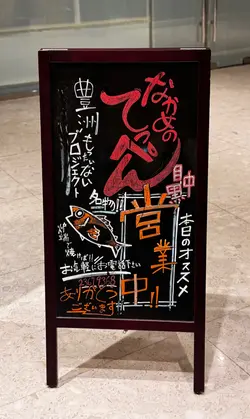 なかめの
てっぺん
中目黒
本日のオススメ
営業中!!
豊洲
もったいない
プロジェクト
名物!!
お気軽にお電話下さい
ありがとう
ございます